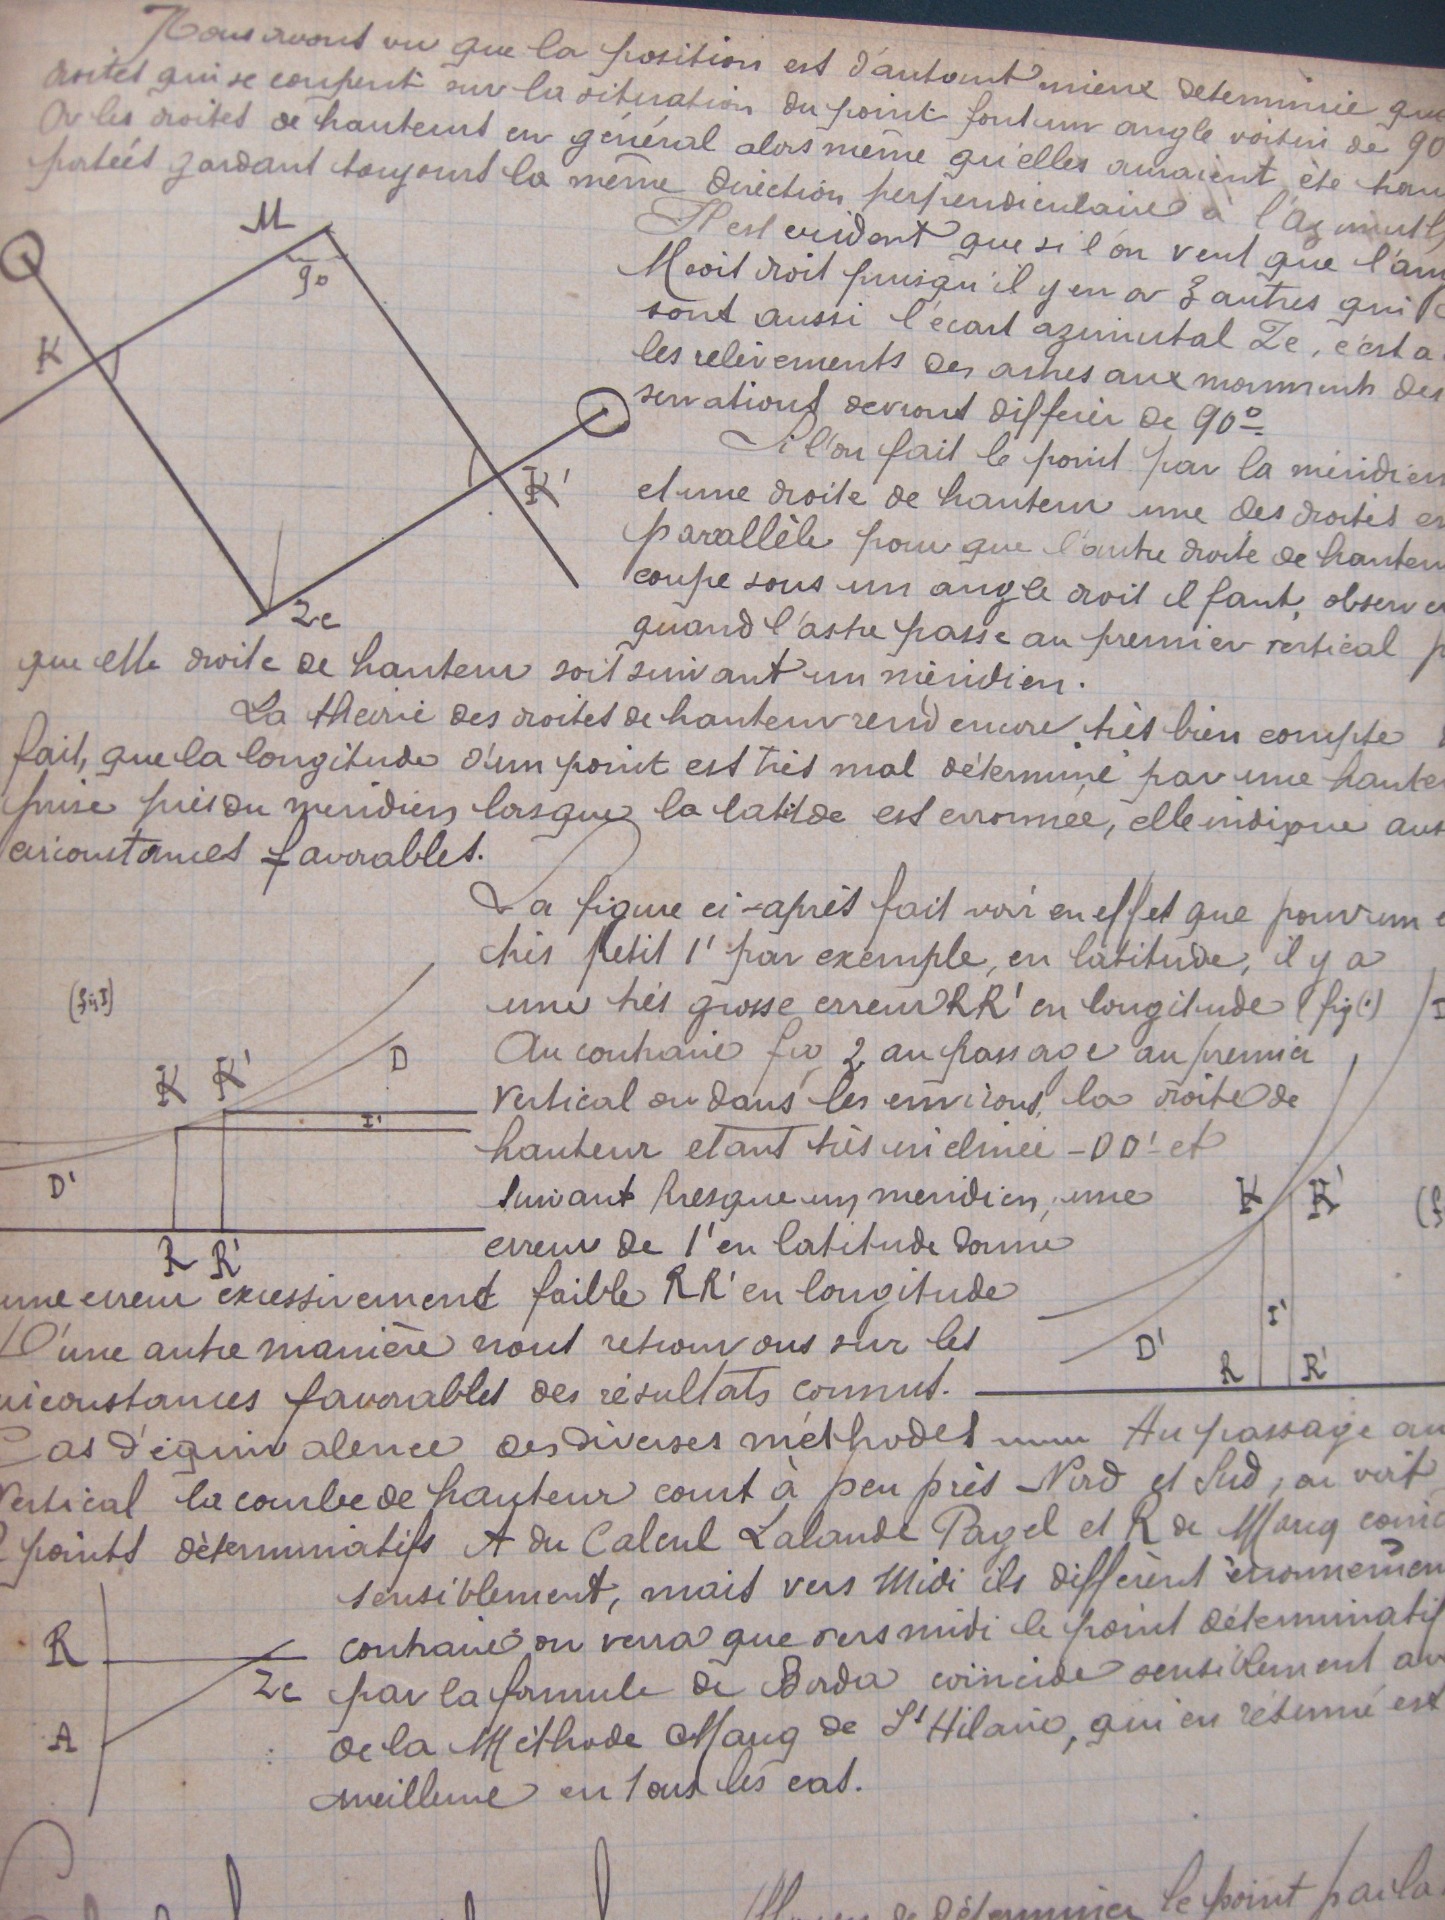 Nous avons vu que la position est d'autant mieux déterminée que
droites qui se coupent sur la situation du point font un angle voisin de 90
Or les droites de hauteurs en général alors même qu'elles auraient été
portées gardant toujours la même direction perpendiculaire à l'Azimuth
Il est evident que si l'on veut que l'an
M soit droit puisqu'il y en a 3 autres qui
sont aussi l'écart azimutal Ze, c'est a
les relèvements des astres aux moments des
servations devront différer de 90º
Si l'on fait le point par la méridien
et une droite de hauteur une des droites es
parallèle pour que l'autre droite de hauteur
coupe sous un angle droit il faut, observer
quand l'astre passe au premier vertical p
que elle droite de hauteur soit suivant un méridien.
La théorie des droites de hauteur rend encore très bien compte
fait, que la longitude d'un point est très mal déterminé par une haute
prise près du meridien lorsque la latitde est erronnée, elle indique aus
circonstances favorables.
La figure ci-après fait voir en effet que pour un e
très petit 1' par exemple, en latitude, il y a
une très grosse erreur RR' en longitude (fig 1)
Au contraire fig 2 au passage au premier
vertical ou dans les environs, la droite de
hauteur etant très inclinée - DD' - et
suivant presque un meridien, une
erreur de 1' en latitude donne
une erreur excessivement faible RR' en longitude
D'une autre manière nous retrouvons sur les
circonstances favorables des résultats connus.
Cas d'équivalence des diverses méthodes Au passage au
Vertical la courbe de hauteur court à peu près Nord et Sud, on voit
points déterminatifs A du Calcul Lalande Pagel et R de Marcq coinc
sensiblement, mais vers Midi ils diffèrent énormémen
contraire on verra que vers midi le point déterminatif
par la formule de Borda coïncide sensiblement av
de la Méthode Marcq de St Hilaire, qui en résumé est
meilleure en tous les cas.
M
90
K
K'
Ze
(fig I)
K K'
D
1'
D'
R R'
K K'
D'
1'
R R'
R
Ze
A
de déterminer le point par la